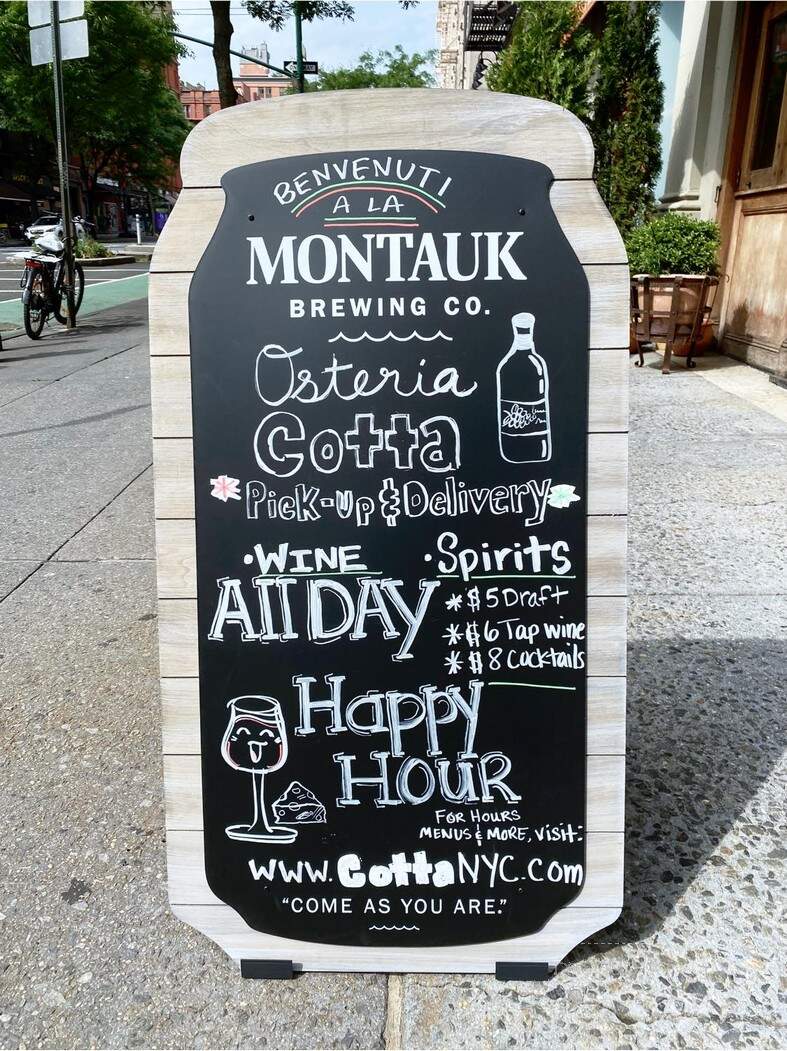 BENVENUTI
A LA
MONTAUK
BREWING CO.
Osteria
Cotta
Pick-up & Delivery
•WINE
All DAY
•Spirits
*$5 Draft
*$6 Tap wine
*$8 Cocktails
Happy
HOUR
FOR HOURS
MENUS & MORE, visit:
www.CottaNYC.com
"COME AS YOU ARE."